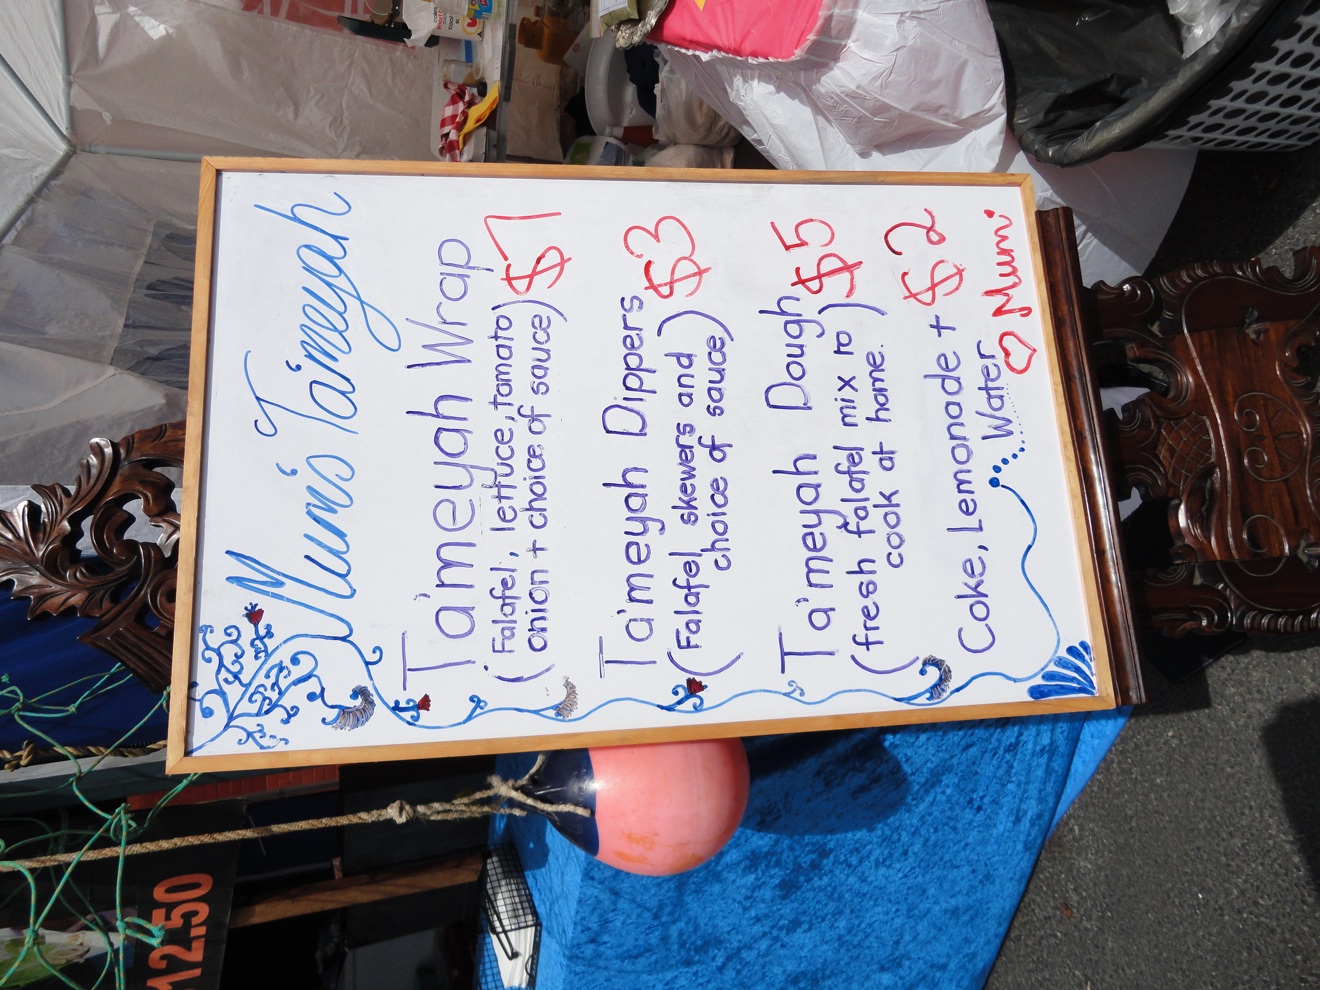 Mum's Ta'meyah
Ta'meyah Wrap
(Falafel, lettuce, tomato
onion + choice of sauce) $7
Ta'meyah Dippers
(Falafel skewers and
choice of sauce) $3
Ta'meyah Dough
(fresh falafel mix to
cook at home.) $5
Coke, Lemonade +
Water $2
♡ Mum.
12.50